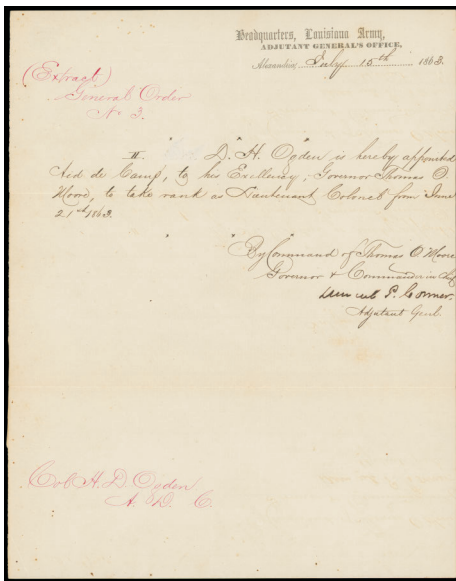 Headquarters, Louisiana Army,
ADJUTANT GENERAL'S OFFICE,
Alexandria, July 15th 1863.
(Extract)
General Order
No 3.
" " "
II. D. H. Ogden is hereby appointed
Aid de Camp, to his Excellency, Governor Thomas O
Moore, to take rank as Lieutenant Colonel from June
21st 1863.
" " "
By Command of Thomas O. Moore
Governor & Commander in Chf
Adjutant Genl.
Col H. D. Ogden
A. D. C.